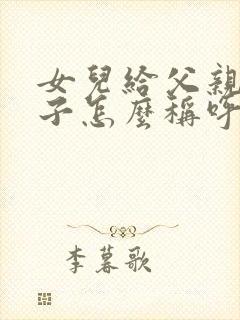 女兒給父親
子怎麼稱呼
李暮歌